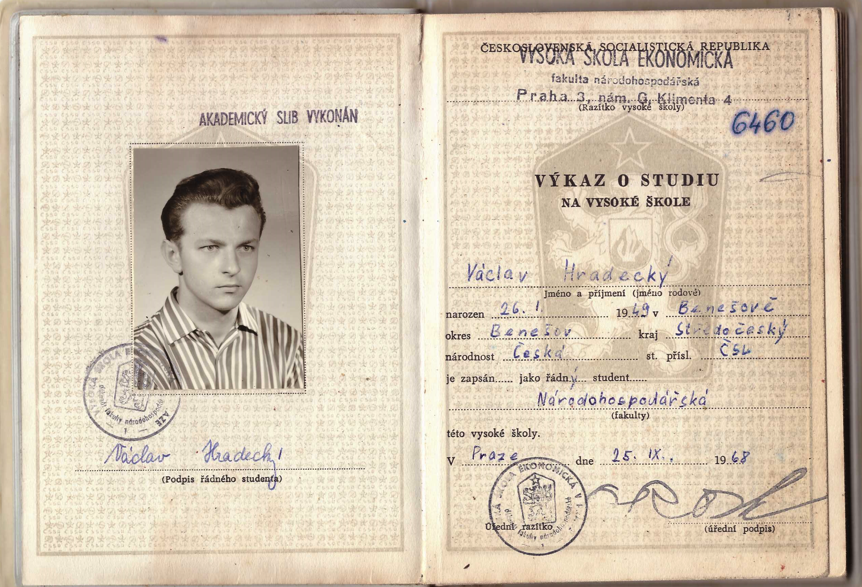 AKADEMICKÝ SLIB VYKONÁN
Václav Hradecký
(Podpis řádného studenta)
ČESKOSLOVENSKÁ SOCIALISTICKÁ REPUBLIKA
VYSOKÁ ŠKOLA EKONOMICKÁ
fakulta národohospodářská
Praha 3, nám. G. Klimenta 4
(Razítko vysoké školy)
6460
VÝKAZ O STUDIU
NA VYSOKÉ ŠKOLE
Václav Hradecký
Jméno a příjmení (jméno rodové)
narozen 26. 1. 1949 v Benešově
okres Benešov kraj Středočeský
národnost Česká st. přísl. ČSR
je zapsán...... jako řádný student.....
Národohospodářská
(fakulty)
této vysoké školy.
V Praze dne 25. IX. 1968
Úřední razítko (úřední podpis)